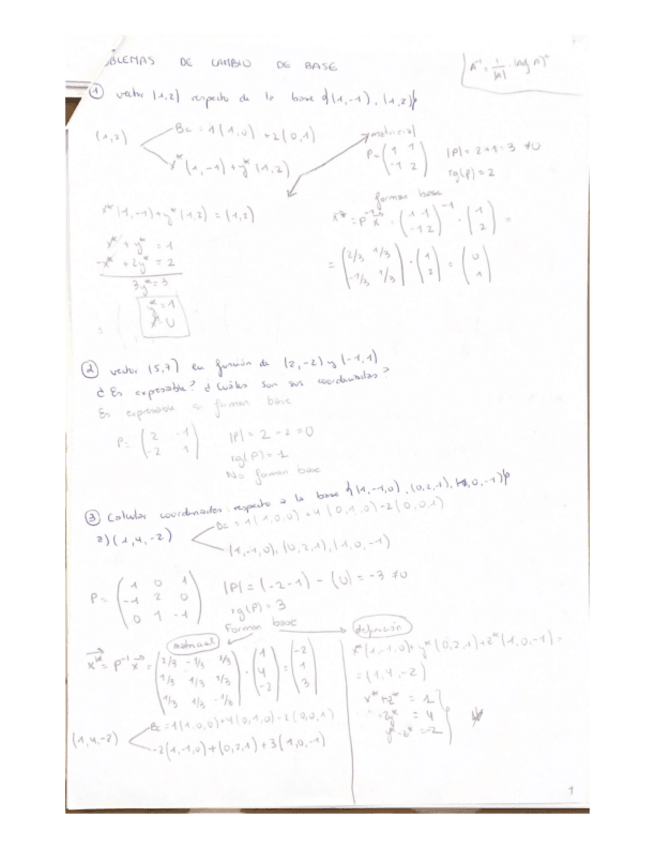 PROBLEMAS DE CAMBIO DE BASE
A⁻¹ = 1/|A| · (adj A)ᵗ
① vector (1,2) respecto de la base {(1,-1), (1,2)}
(1,2)
Bc = 1(1,0) + 2(0,1)
x*(1,-1) + y*(1,2)
matricial
P = (1 1 / -1 2)
|P| = 2+1 = 3 ≠ 0
rg(P) = 2
forman base
x*(1,-1) + y*(1,2) = (1,2)
x* + y* = 1
-x* + 2y* = 2
3y* = 3
y* = 1
x* = 0
x* = P⁻¹ x = (1 1 / -1 2)⁻¹ · (1 / 2) =
= (2/3 1/3 / -1/3 1/3) · (1 / 2) = (0 / 1)
② vector (5,7) en función de (2,-2) y (-1,1)
¿Es expresable? ¿Cuáles son sus coordenadas?
Es expresable si forman base
P = (2 -1 / -2 1)
|P| = 2 - 2 = 0
rg(P) = 1
No forman base
③ Calcular coordenadas respecto a la base {(1,-1,0), (0,2,1), (1,0,-1)}
a) (1,4,-2)
Bc = 1(1,0,0) + 4(0,1,0) - 2(0,0,1)
(1,-1,0), (0,2,1), (1,0,-1)
P = (1 0 1 / -1 2 0 / 0 1 -1)
|P| = (-2-1) - (0) = -3 ≠ 0
rg(P) = 3
Forman base
matricial
definición
x* = P⁻¹ x = (2/3 -1/3 2/3 / 1/3 1/3 1/3 / 1/3 1/3 -2/3) · (1 / 4 / -2) = (-2 / 1 / 3)
x*(1,-1,0) + y*(0,2,1) + z*(1,0,-1) =
= (1,4,-2)
x* + z* = 1
2y* = 4
y* - z* = -2
(1,4,-2)
Bc = 1(1,0,0) + 4(0,1,0) - 2(0,0,1)
-2(1,-1,0) + (0,2,1) + 3(1,0,-1)
1